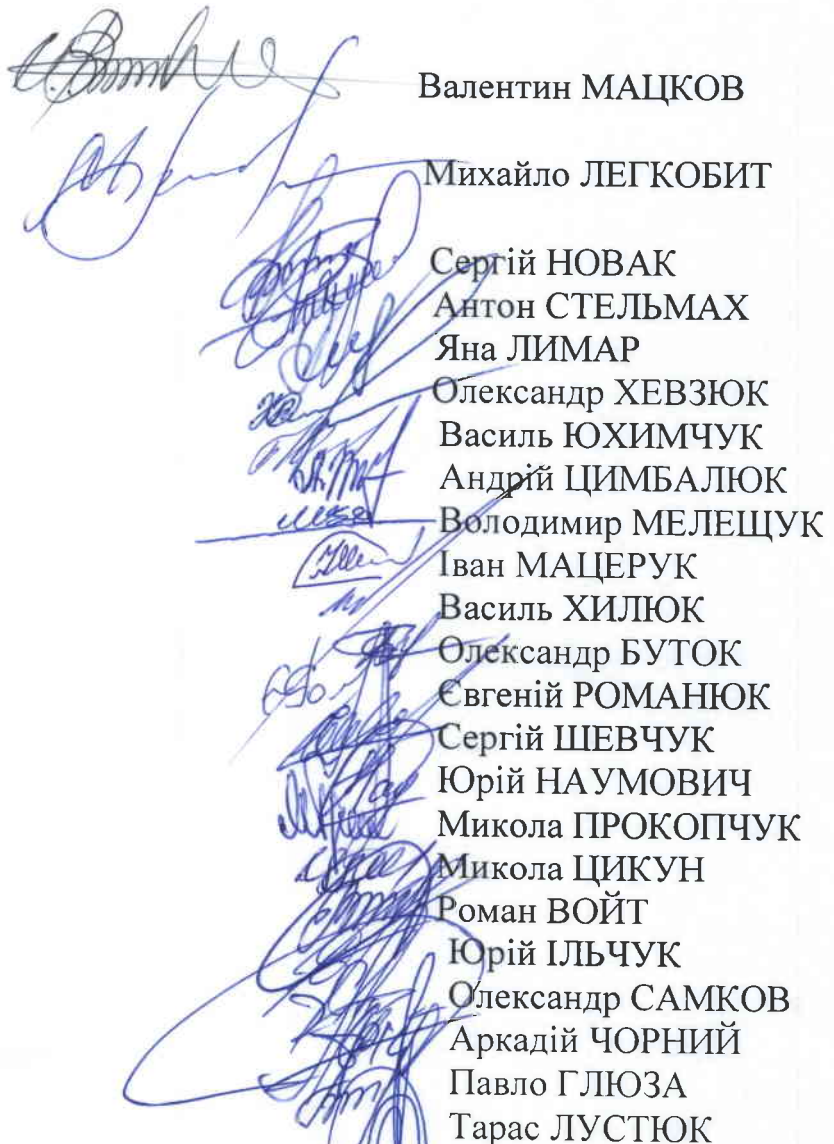 Валентин МАЦКОВ
Михайло ЛЕГКОБИТ
Сергій НОВАК
Антон СТЕЛЬМАХ
Яна ЛИМАР
Олександр ХЕВЗЮК
Василь ЮХИМЧУК
Андрій ЦИМБАЛЮК
Володимир МЕЛЕЩУК
Іван МАЦЕРУК
Василь ХИЛЮК
Олександр БУТОК
Євгеній РОМАНЮК
Сергій ШЕВЧУК
Юрій НАУМОВИЧ
Микола ПРОКОПЧУК
Микола ЦИКУН
Роман ВОЙТ
Юрій ІЛЬЧУК
Олександр САМКОВ
Аркадій ЧОРНИЙ
Павло ГЛЮЗА
Тарас ЛУСТЮК